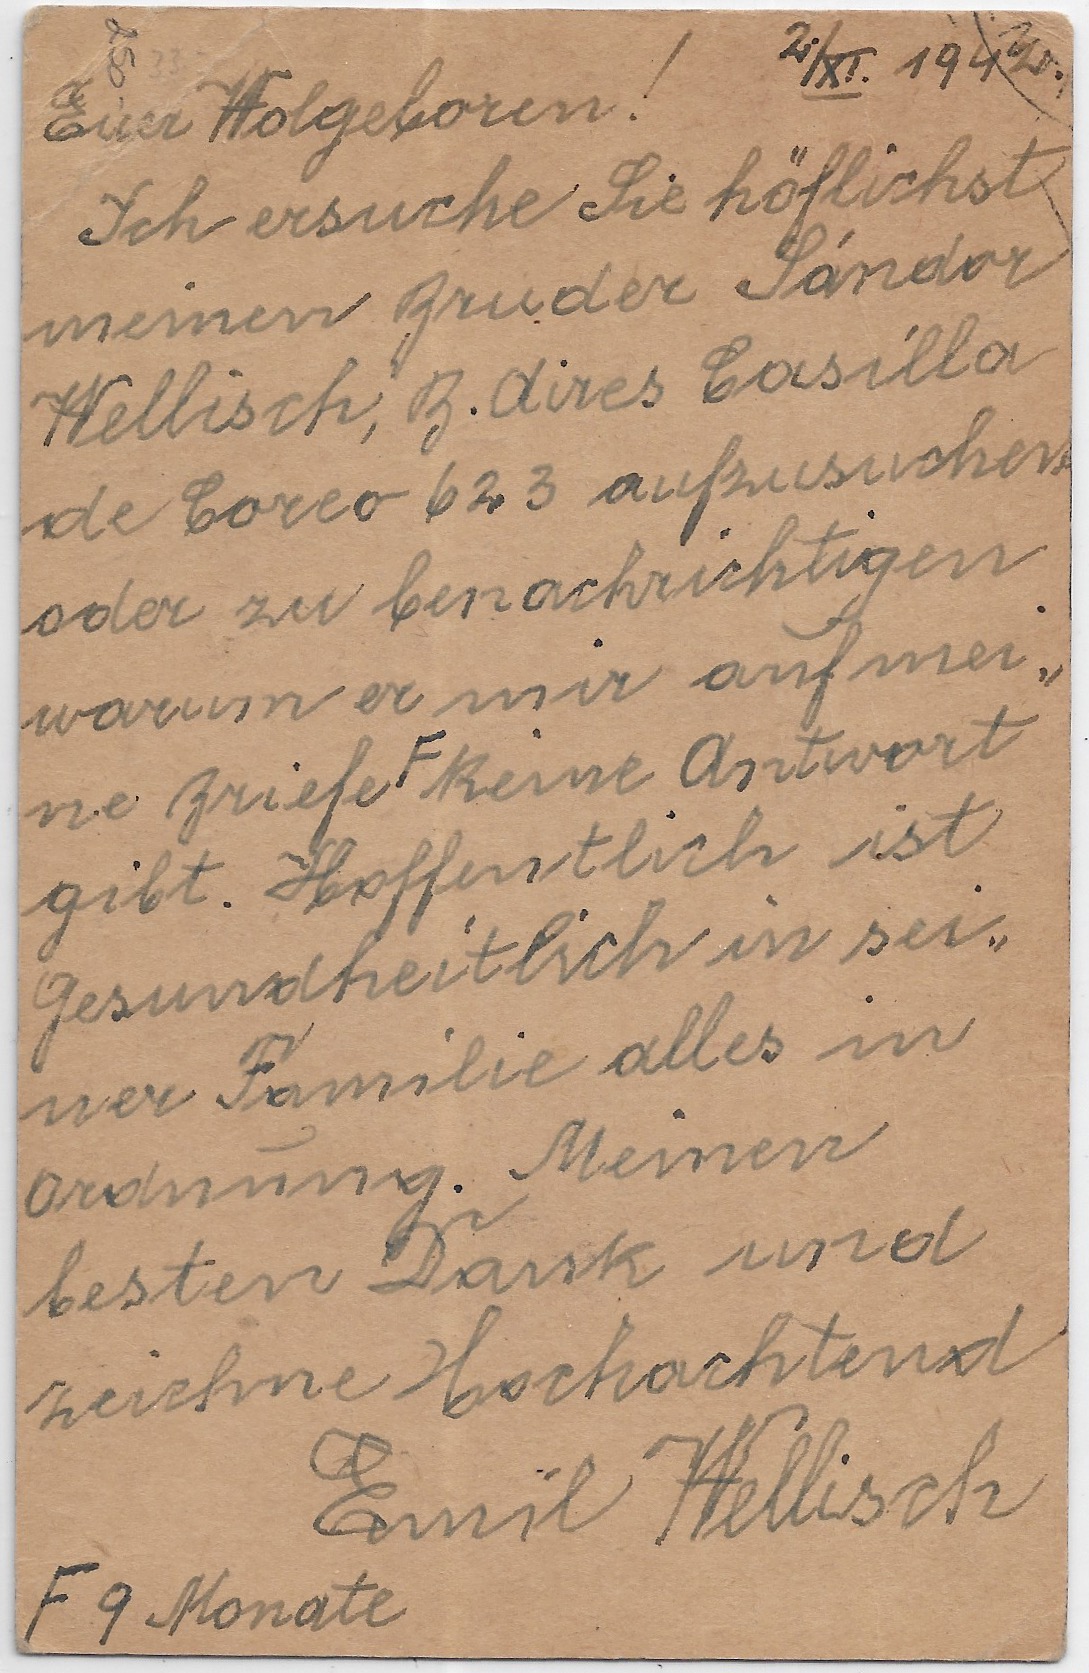 2./XI. 1942.
Euer Wolgeboren!
Ich ersuche Sie höflichst
meinen Bruder Sándor
Wellisch, B. Aires Casilla
de Coreo 623 aufzusuchen
oder zu benachrichtigen
warum er mir auf mei„
ne Briefe F keine Antwort
gibt. Hoffentlich ist
Gesundheitlich in sei„
ner Familie alles in
Ordnung. Meinen
besten Dank und
zeichne Hochachtend
Emil Wellisch
F 9 Monate